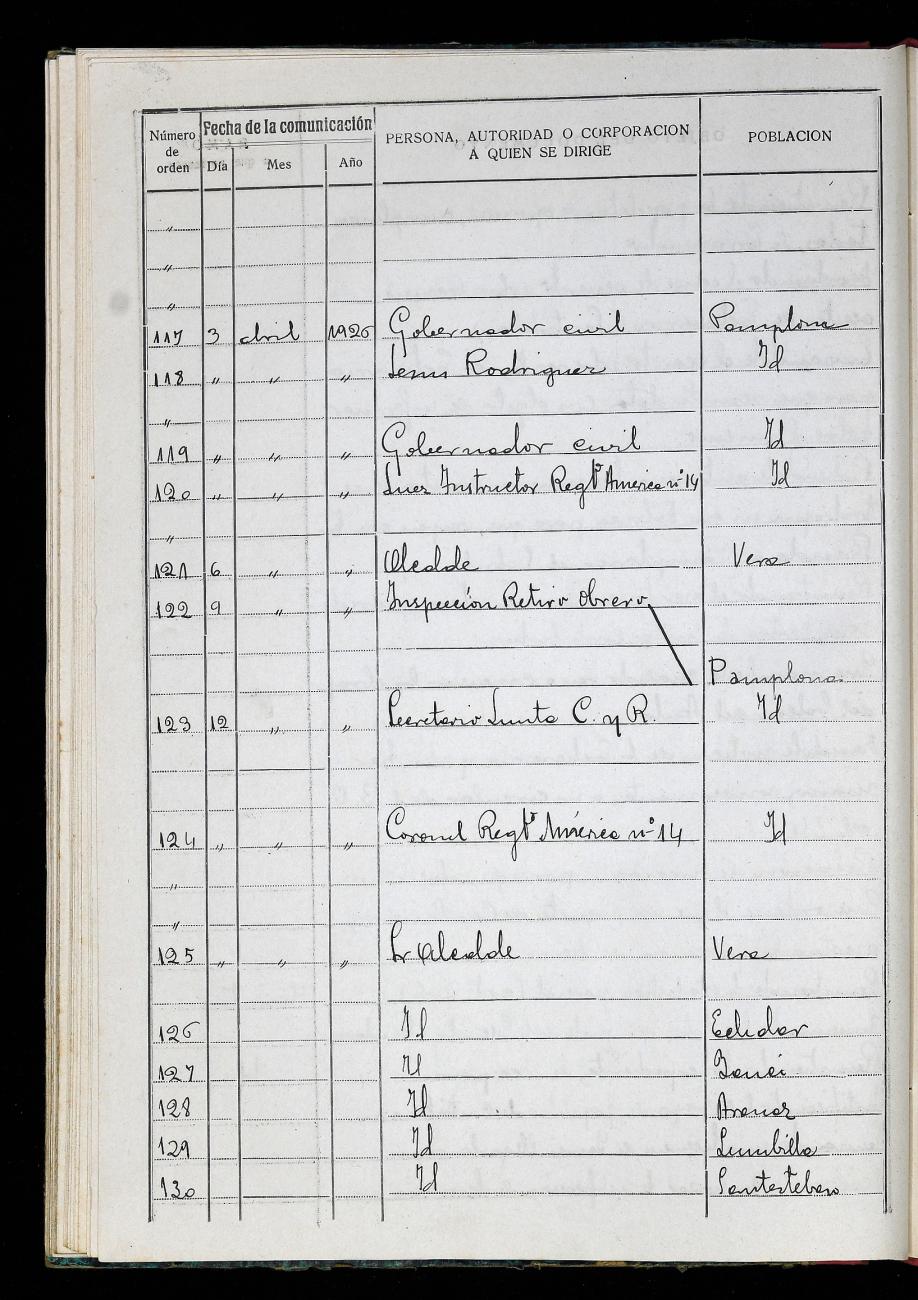 Número de orden Fecha de la comunicación PERSONA, AUTORIDAD O CORPORACION A QUIEN SE DIRIGE POBLACION
Día Mes Año
"
"
"
117 3 abril 1926 Gobernador civil Pamplona
118 " " " Jesus Rodriguez Id
"
119 " " " Gobernador civil Id
120 " " " Juez Instructor Regtº America nº 14 Id
"
121 6 " " Alcalde Vera
122 9 " " Inspección Retiro Obrero
Pamplona
123 12 " " Secretario Junta C. y R. Id
124 " " " Coronel Regtº América nº 14 Id
"
"
125 " " " Sr Alcalde Vera
126 Id Echalar
127 Id Yanci
128 Id Aranaz
129 Id Sumbilla
130 Id Santesteban